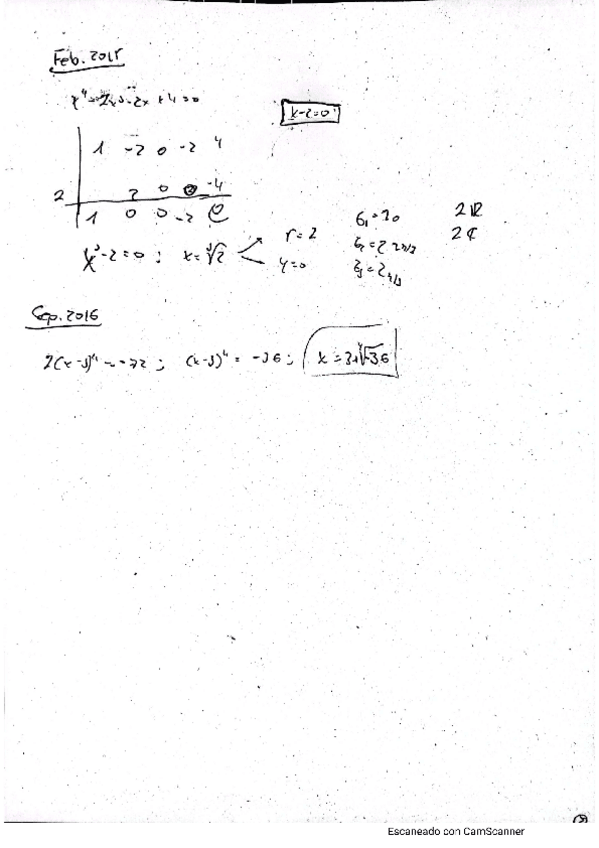 Feb. 2015
x⁴-2x³-2x+4=0
x-2=0
1 -2 0 -2 4
2 2 0 0 -4
1 0 0 -2 0
r=2
φ=0
2 ℝ
2 ℂ
x³-2=0; x=∛2
Sep. 2016
2(x-3)⁴=-72; (x-3)⁴=-36; x=3+⁴√-36
Escaneado con CamScanner